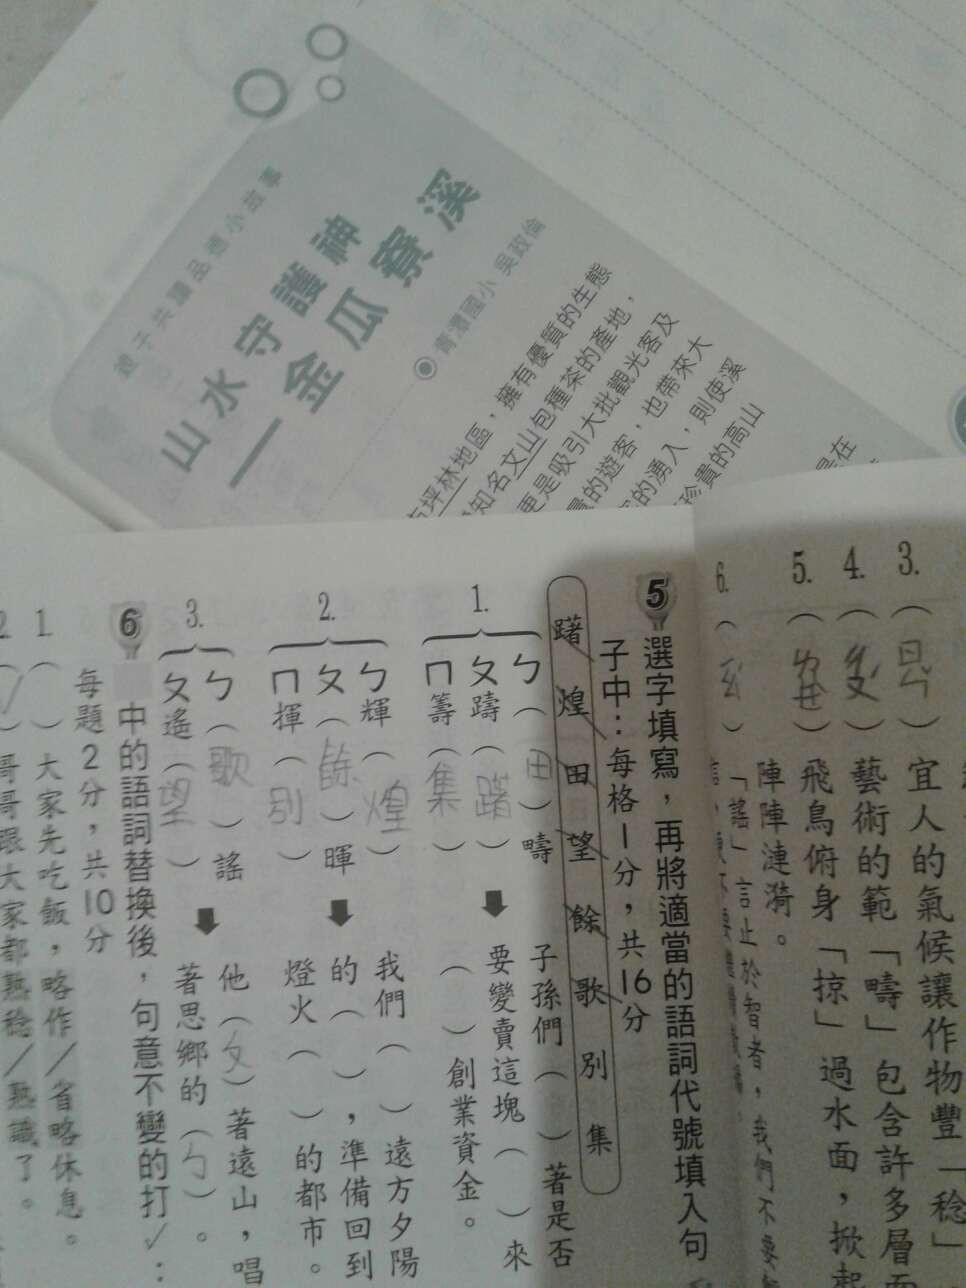 親子共讀品德小故事
山水守護神
—金瓜寮溪
青潭國小 吳政倫
坪林地區，擁有優質的生態
知名文山包種茶的產地，
更是吸引大批觀光客及
的遊客，也帶來大
的湧入，則使溪
珍貴的高山
是在
3.（ ）宜人的氣候讓作物豐「稔」
4.（ ）藝術的範「疇」包含許多層
5.（ㄅ）飛鳥俯身「掠」過水面，掀起
陣陣漣漪。
6.（ ）
「謠」言止於智者，我們不要
5 選字填寫，再將適當的語詞代號填入句
子中：每格1分，共16分
躇 煌 田 望 餘 歌 別 集
1.
ㄅ（田）疇
ㄆ躊（躇）
ㄇ籌（集）
子孫們（ ）著是否
要變賣這塊（ ）來
（ ）創業資金。
2.
ㄅ輝（煌）
ㄆ（餘）暉
ㄇ揮（別）
我們（ ）遠方夕陽
的（ ），準備回到
燈火（ ）的都市。
3.
ㄅ（歌）謠
ㄆ遙（望）
他（ㄆ）著遠山，唱
著思鄉的（ㄅ）。
6 中的語詞替換後，句意不變的打✓：
每題2分，共10分
1.（ ）大家先吃飯，略作／省略休息。
2.（✓）哥哥跟大家都熟稔／熟識了。